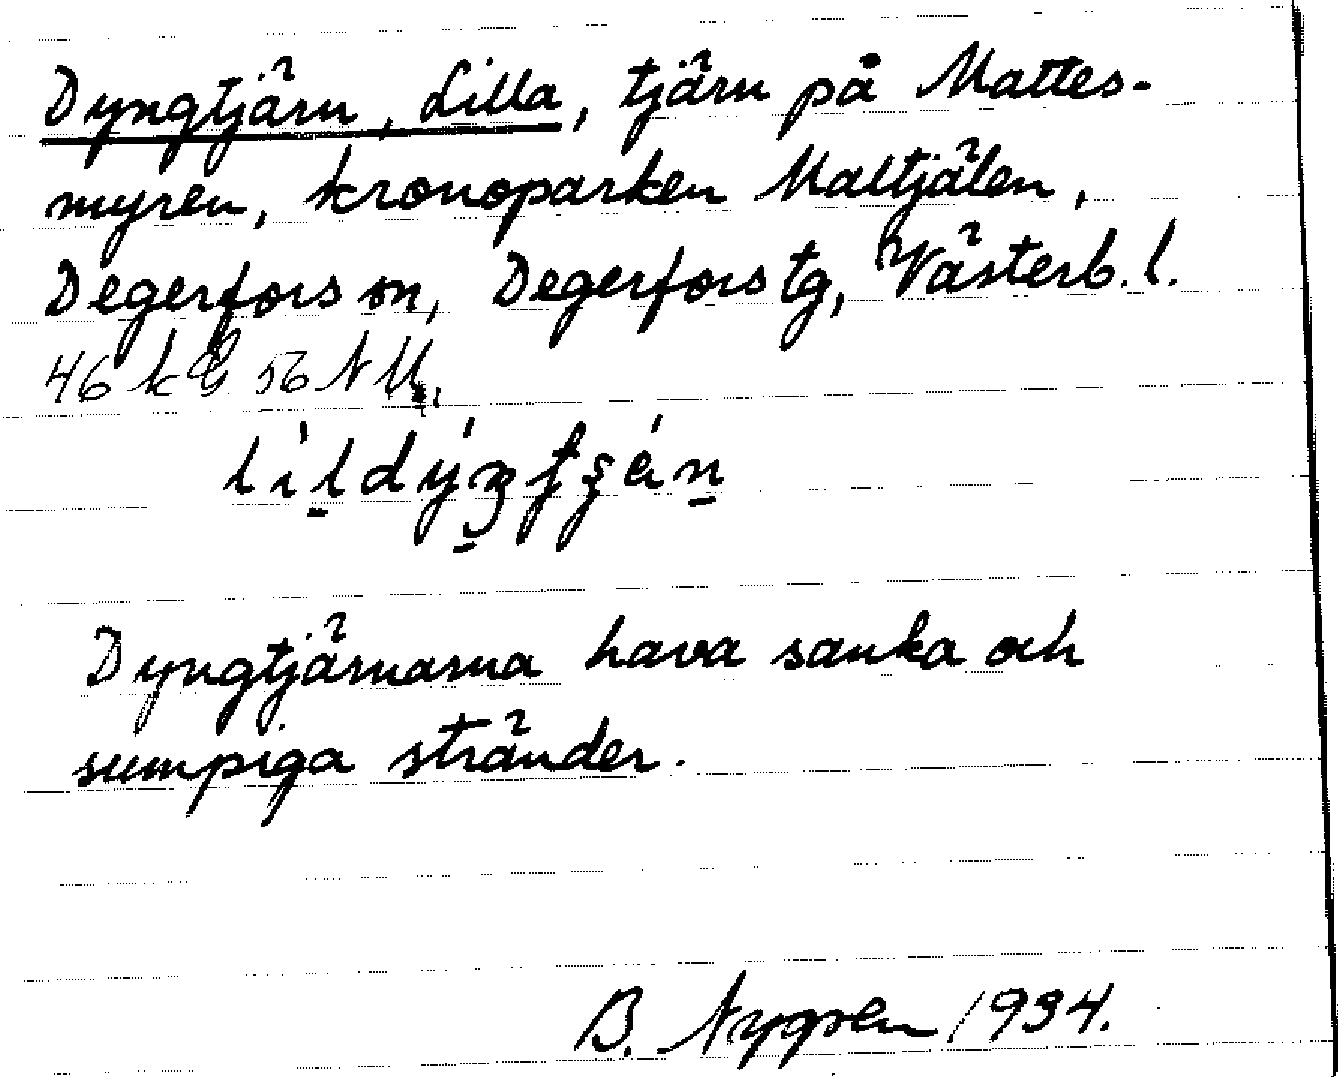 Dyngtjärn, Lilla, tjärn på Mattes-
myren, kronoparken Maltjälen,
Degerfors sn, Degerfors tg, Västerb. l.
46 k 56 N
Dyngtjärnarna hava sanka och
sumpiga stränder.
B. Nygren 1934.